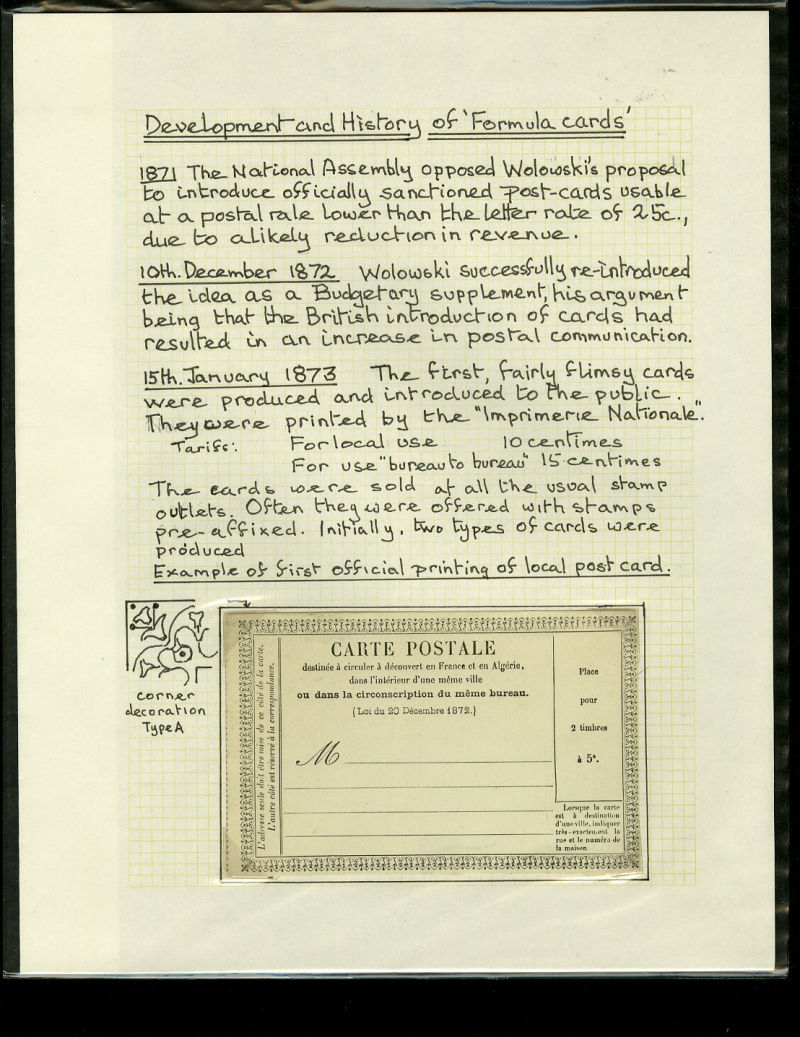 Development and History of 'Formula cards'
1871 The National Assembly opposed Wolowski's proposal
to introduce officially sanctioned post-cards usable
at a postal rale lower than the letter rate of 25c.,
due to a likely reduction in revenue.
10th. December 1872 Wolowski successfully re-introduced
the idea as a Budgetary supplement, his argument
being that the British introduction of cards had
resulted in an increase in postal communication.
15th. January 1873 The first, fairly flimsy cards
were produced and introduced to the public.
They were printed by the "Imprimerie Nationale".
Tarifs: For local use 10 centimes
For use "bureau to bureau" 15 centimes
The cards were sold at all the usual stamp
outlets. Often they were offered with stamps
pre-affixed. Initially, two types of cards were
produced
Example of first official printing of local post card.
corner
decoration
Type A
L'adresse seule doit être mise de ce côté de la carte.
L'autre côté est réservé à la correspondance.
CARTE POSTALE
destinée à circuler à découvert en France et en Algérie,
dans l'intérieur d'une même ville
ou dans la circonscription du même bureau.
(Loi du 20 Décembre 1872.)
M
Place
pour
2 timbres
à 5c.
Lorsque la carte
est à destination
d'une ville, indiquer
très-exactement la
rue et le numéro de
la maison